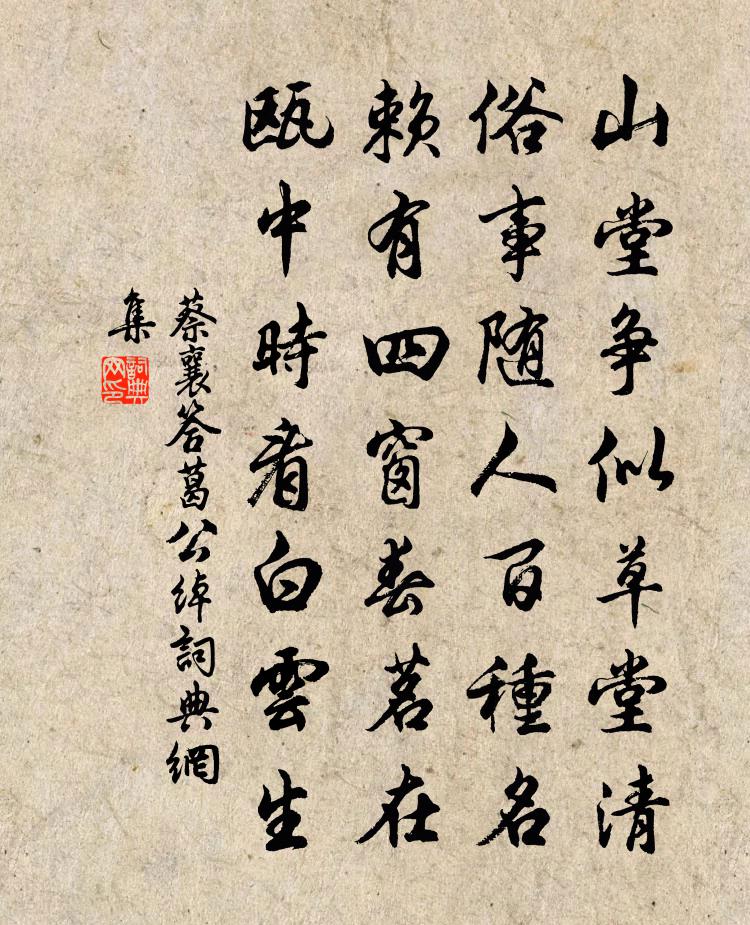 山堂争似草堂清
俗事随人百種名
赖有四窗春茗在
甌中時看白雲生
蔡襄答葛公绰詞典網
集
詞典
网印